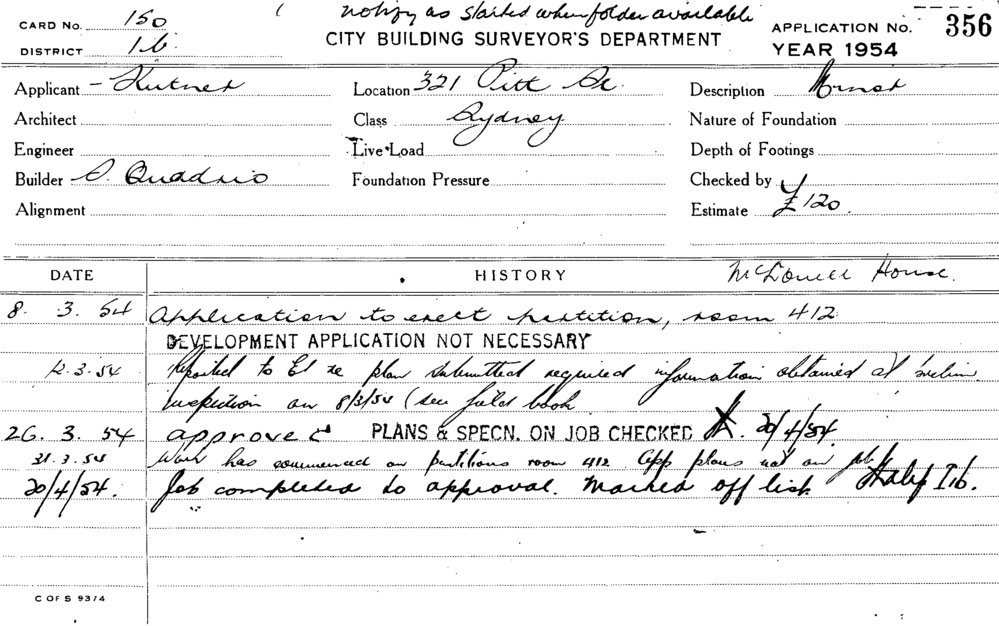 notify as started when folder available
CARD No. 150
CITY BUILDING SURVEYOR'S DEPARTMENT
APPLICATION No. 356
DISTRICT 1b
YEAR 1954
Applicant - Kutner Location 321 Pitt St. Description
Architect Class Sydney Nature of Foundation
Engineer Live Load Depth of Footings
Builder S. Quadrio Foundation Pressure Checked by
Alignment Estimate £120.
DATE HISTORY McDowell House.
8. 3. 54 Application to erect partition, room 412
DEVELOPMENT APPLICATION NOT NECESSARY
12.3.54 Reported to re plan submitted required information obtained at
inspection on 8/3/54 (see field book
26. 3. 54 approved PLANS & SPECN. ON JOB CHECKED 20/4/54.
31.3.54 Work has commenced on partitions room 412. App plans not on job
20/4/54. Job completed to approval. Marked off list. I b.
C OF S 9374